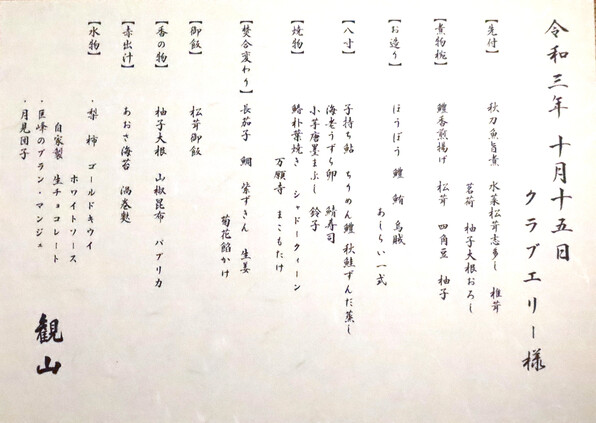 令和三年 十月十五日
クラブエリー様
【先付】 秋刀魚旨煮 水菜松茸志多し 椎茸
茗荷 柚子大根おろし
【煮物椀】 鱧香煎揚げ 松茸 四角豆 柚子
【お造り】 ほうぼう 鱧 鮪 烏賊
あしらい一式
【八寸】 子持ち鮎 ちりめん鱧 秋鮭ずんだ蒸し
海老うずら卵 鯖寿司
小芋唐墨まぶし 鈴子
【焼物】 鰆朴葉焼き シャドークィーン
万願寺 まこもたけ
【焚合変わり】 長茄子 鯛 紫ずきん 生姜
菊花餡かけ
【御飯】 松茸御飯
【香の物】 柚子大根 山椒昆布 パプリカ
【赤出汁】 あおさ海苔 渦巻麩
【水物】 ・梨 柿 ゴールドキウイ
ホワイトソース
自家製 生チョコレート
・巨峰のブラン・マンジェ
・月見団子
観山